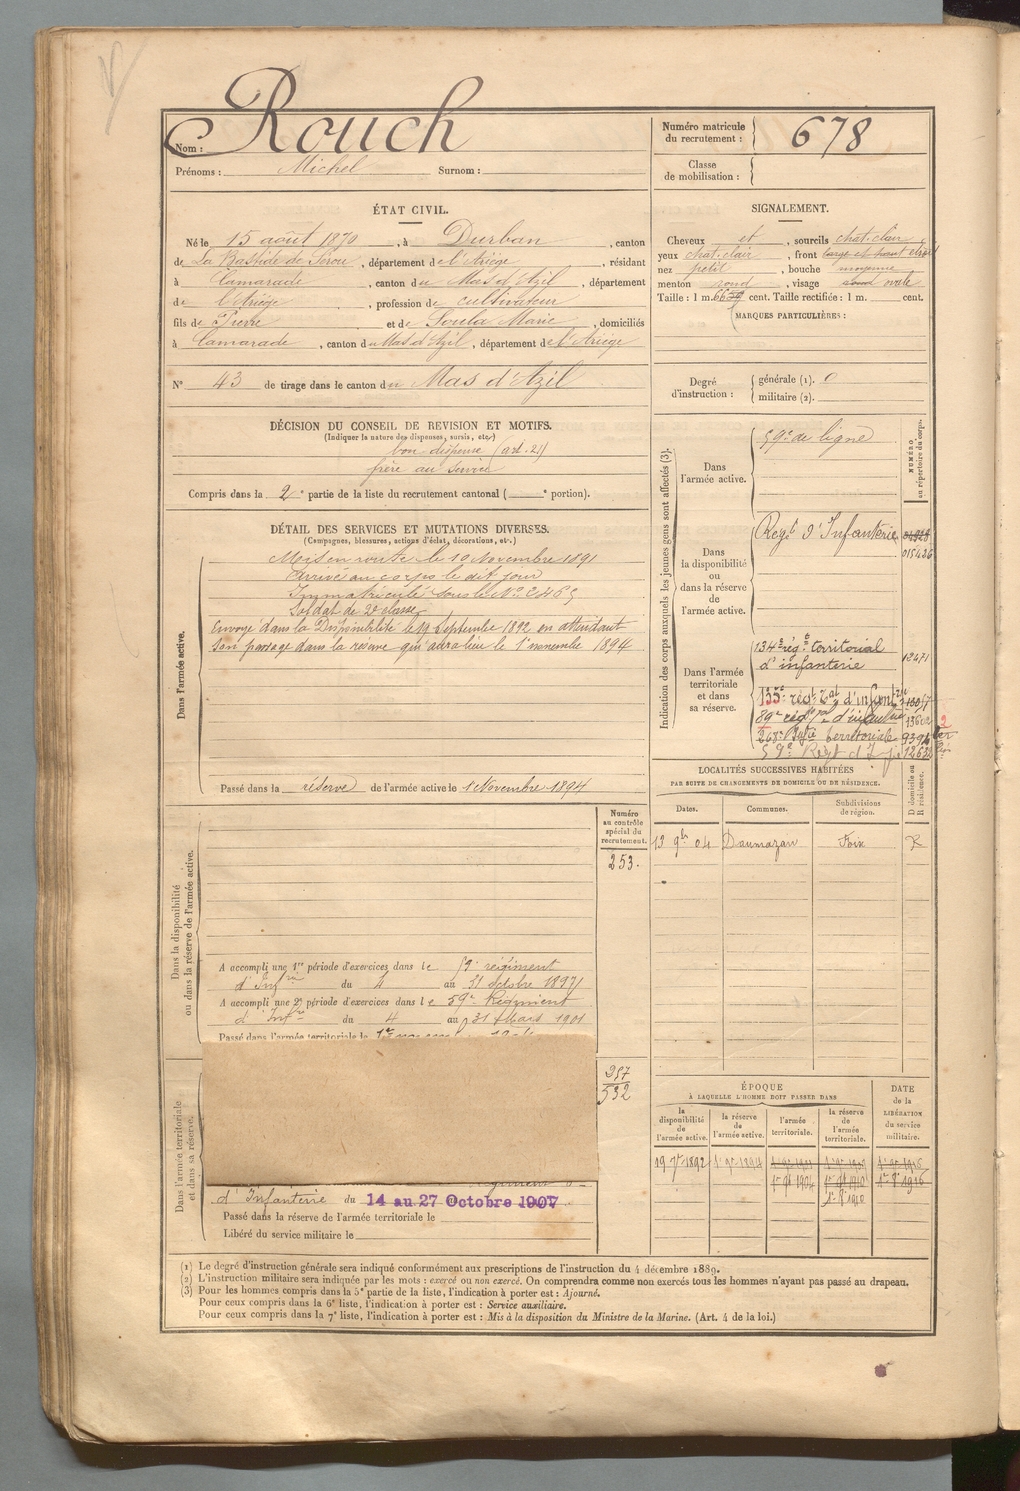 Nom : Rouch
Prénoms : Michel Surnom :
Numéro matricule du recrutement : 678
Classe de mobilisation :
ÉTAT CIVIL.
Né le 15 août 1870, à Durban, canton
de La Bastide de Sérou, département de l'Ariège, résidant
à Camarade, canton du Mas d'Azil, département
de l'Ariège, profession de cultivateur
fils de Pierre et de Soula Marie, domiciliés
à Camarade, canton du Mas d'Azil, département de l'Ariège
N° 43 de tirage dans le canton du Mas d'Azil
SIGNALEMENT.
Cheveux et, sourcils chat. clair
yeux chat. clair, front large et haut
nez petit, bouche moyenne
menton rond, visage rond ovale
Taille : 1 m. 66 cent. Taille rectifiée : 1 m. cent.
MARQUES PARTICULIÈRES :
Degré d'instruction : générale (1). 0
militaire (2).
DÉCISION DU CONSEIL DE REVISION ET MOTIFS.
(Indiquer la nature des dispenses, sursis, etc.)
bon dispensé (art. 21)
frère au service
Compris dans la 2e partie de la liste du recrutement cantonal ( e portion).
DÉTAIL DES SERVICES ET MUTATIONS DIVERSES.
(Campagnes, blessures, actions d'éclat, décorations, etc.)
Dans l'armée active.
Mis en route le 10 Novembre 1891
arrivé au corps le dit jour
Immatriculé sous le N° 2465
Soldat de 2e classe
Envoyé dans la Disponibilité le 19 Septembre 1892 en attendant
son passage dans la réserve qui aura lieu le 1er novembre 1894
Passé dans la réserve de l'armée active le 1er Novembre 1894
Indication des corps auxquels les jeunes gens sont affectés (3).
NUMÉRO au répertoire du corps.
Dans l'armée active.
59e de ligne
Dans la disponibilité ou dans la réserve de l'armée active.
Regt d'Infanterie
015426
Dans l'armée territoriale et dans sa réserve.
134e régt territorial
d'infanterie 12471
135e régt Tal d'infanterie
89e régt Tal d'infanterie
Berritoriale
59e Regt d'
LOCALITÉS SUCCESSIVES HABITÉES
PAR SUITE DE CHANGEMENTS DE DOMICILE OU DE RÉSIDENCE.
Dates. Communes. Subdivisions de région. D domicile ou R résidence.
13 9bre 04 Daumazan Foix R
Numéro au contrôle spécial du recrutement.
253.
Dans la disponibilité ou dans la réserve de l'armée active.
A accompli une 1re période d'exercices dans le 59e régiment
d'Infrie du 4 au 31 octobre 1897
A accompli une 2e période d'exercices dans le 59e Régiment
d'Infrie du 4 au 31 Mars 1901
Passé dans l'armée territoriale le 1er
257
532
Dans l'armée territoriale et dans sa réserve.
d'Infanterie du 14 au 27 Octobre 1907
Passé dans la réserve de l'armée territoriale le
Libéré du service militaire le
ÉPOQUE
À LAQUELLE L'HOMME DOIT PASSER DANS
la disponibilité de l'armée active. la réserve de l'armée active. l'armée territoriale. la réserve de l'armée territoriale.
DATE de la LIBÉRATION du service militaire.
19 7bre 1892 1er 9bre 1894
1er 9bre 1904
(1) Le degré d'instruction générale sera indiqué conformément aux prescriptions de l'instruction du 4 décembre 1889.
(2) L'instruction militaire sera indiquée par les mots : exercé ou non exercé. On comprendra comme non exercés tous les hommes n'ayant pas passé au drapeau.
(3) Pour les hommes compris dans la 5e partie de la liste, l'indication à porter est : Ajourné.
Pour ceux compris dans la 6e liste, l'indication à porter est : Service auxiliaire.
Pour ceux compris dans la 7e liste, l'indication à porter est : Mis à la disposition du Ministre de la Marine. (Art. 4 de la loi.)